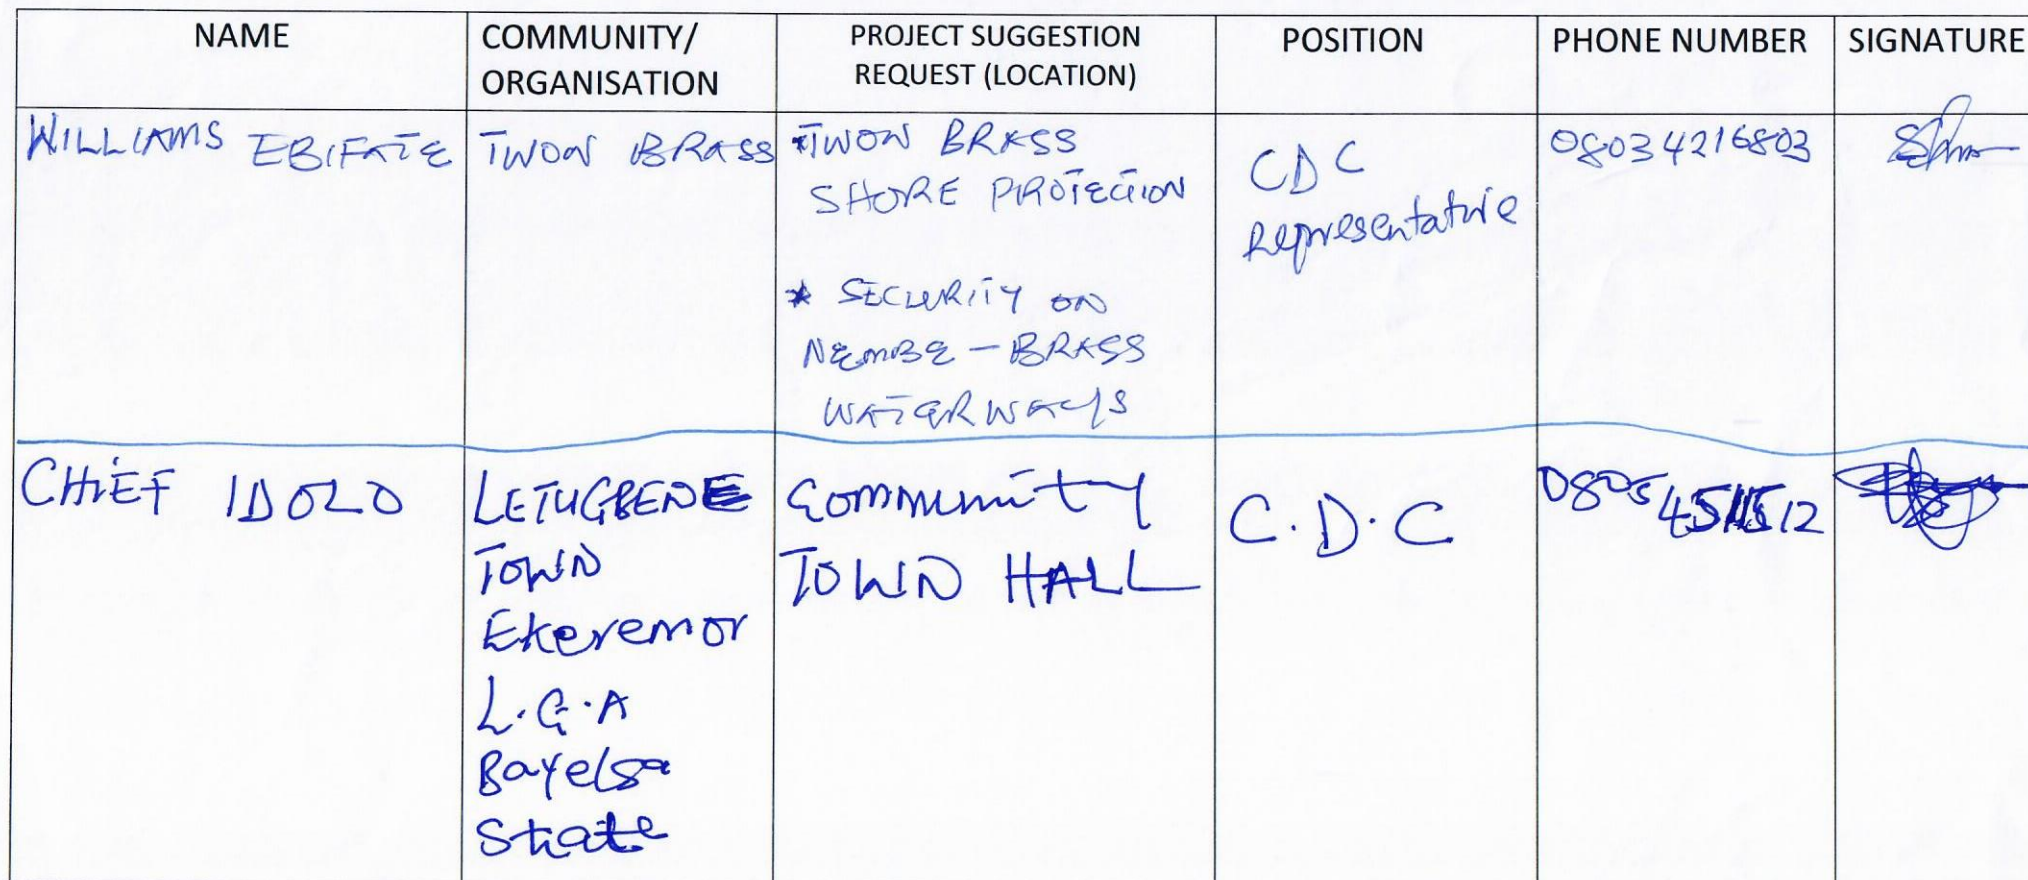 NAME
COMMUNITY/
ORGANISATION
PROJECT SUGGESTION
REQUEST (LOCATION)
POSITION
PHONE NUMBER
SIGNATURE
WILLIAMS EBIFATE
TWON BRASS
*TWON BRASS
SHORE PROTECTION
* SECURITY ON
NEMBE - BRASS
WATERWAYS
CDC
Representative
08034216803
CHIEF IDOLO
LETUGBENE
TOWN
Ekeremor
L.G.A
Bayelsa
State
Community
TOWN HALL
C.D.C